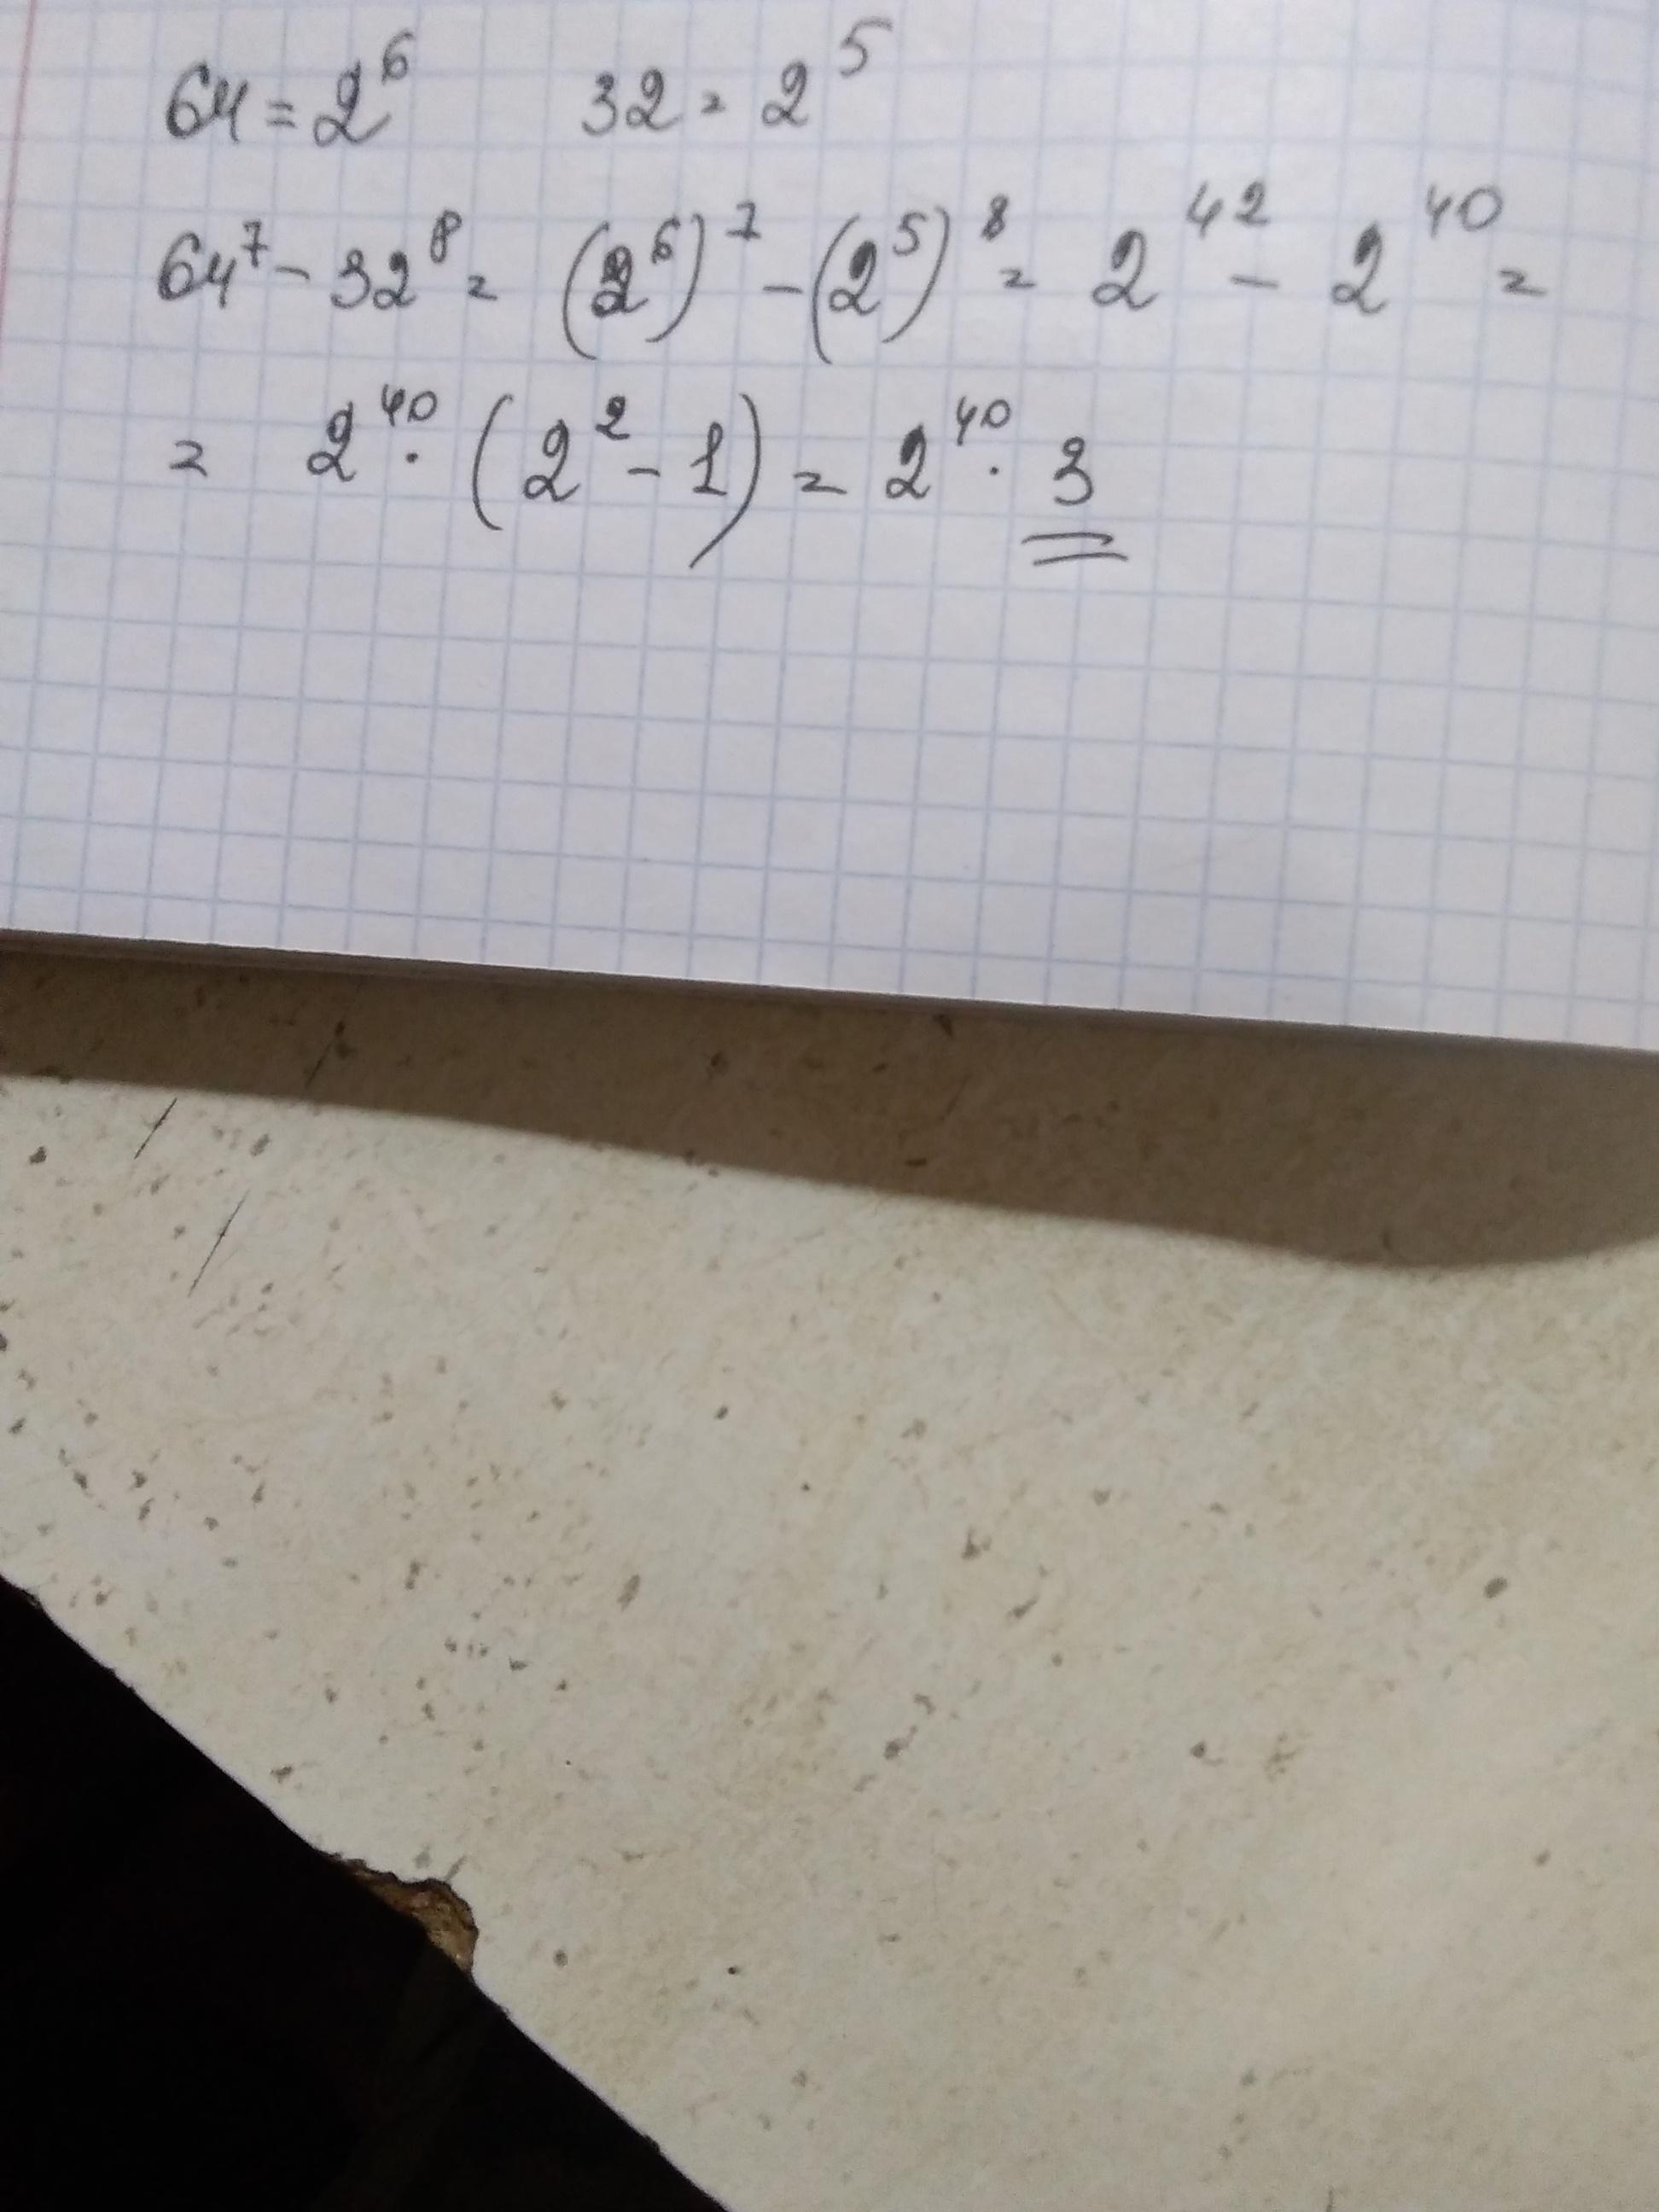 64 = 2⁶ 32 = 2⁵
64⁷ - 32⁸ = (2⁶)⁷ - (2⁵)⁸ = 2⁴² - 2⁴⁰ =
= 2⁴⁰ · (2² - 1) = 2⁴⁰ · 3